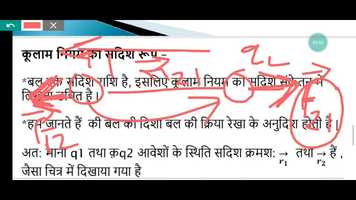 कूलाम नियम का सदिश रूप –
*बल एक सदिश राशि है, इसलिए कूलाम नियम का सदिश संकेतन में
लिखना उचित है।
*हम जानते हैं की बल की दिशा बल की क्रिया रेखा के अनुदिश होती है।
अत: माना q1 तथा क़q2 आवेशों के स्थिति सदिश क्रमश: r₁ तथा r₂ हैं ,
जैसा चित्र में दिखाया गया है